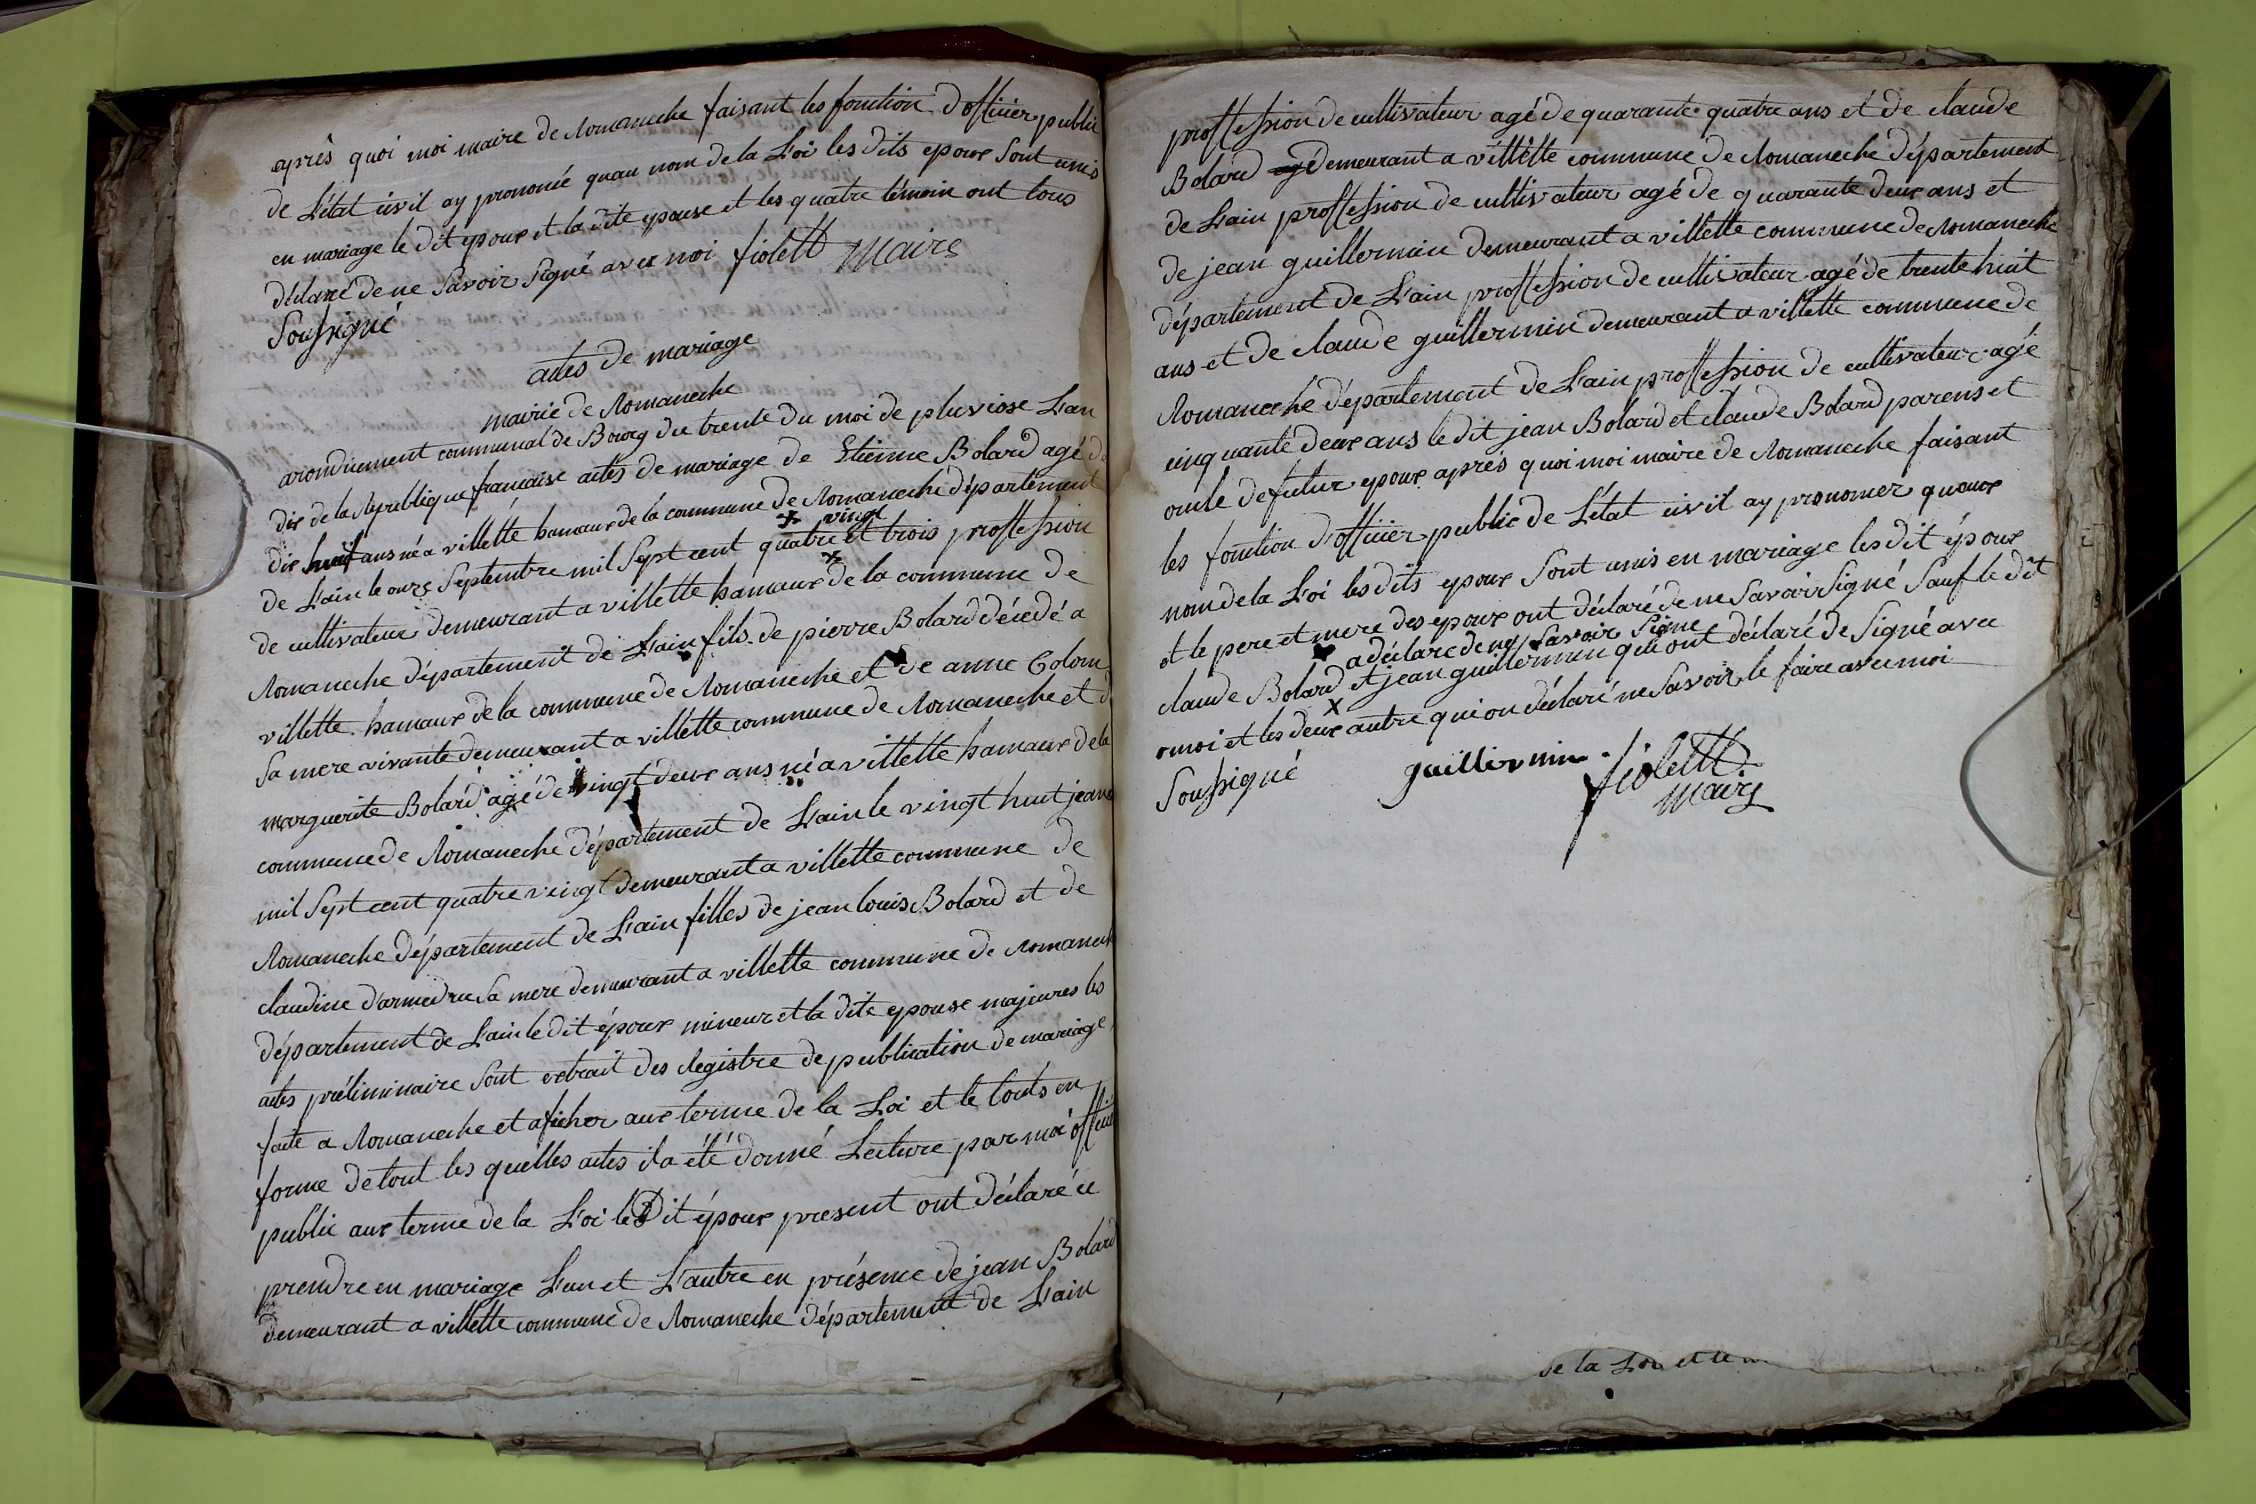 après quoi moi maire de Romaneche faisant les fonction D'officier public
de L'état civil ay prononcé quau nom de la Loi les dits epoux sont unis
en mariage le dit epoux et la dite epouse et les quatre témoin ont tous
déclaré de ne Savoir signé avec moi fiolett Maire
Soussigné
actes de mariage
mairie de Romaneche
arondicement communal de Bourg du trente du moi de pluviose L'an
dix de la République francaise actes de mariage de Etienne Bolard agé de
dix huit ans né a villette hamaux de la commune de Romaneche département
de L'ain le onze Septembre mil Sept cent quatre x vingt et trois proffession
de cultivateur demeurant a villette hamaux x de la commune de
Romaneche département de L'ain fils de pierre Bolard décedé a
villette hamaux de la commune de Romaneche et de anne Colom
Sa mere vivante demeurant a villette commune de Romaneche et de
marguerite Bolard agé de vingt deux ans né a villette hamaux de la
commune de Romaneche département de L'ain le vingt huit jeanv
mil Sept cent quatre vingt demeurant a villette commune de
Romaneche département de L'ain filles de jean louis Bolard et de
claudine darmedru Sa mere demeurant a villette commune de Romanech
département de L'ain le dit époux mineur et la dite epouse majeures les
actes préliminaire Sont extrait des Registre de publication de mariage
faite a Romaneche et aficher aux terme de la Loi et le touts en
forme de tout les quelles actes il a été donné Lecture par moi officie
public aux terme de la Loi les Dit époux present ont déclaré ce
prendre en mariage L'un et L'autre en présence de jean Bolard
demeurant a villette commune de Romaneche département de L'ain
proffession de cultivateur agé de quarante quatre ans et de claude
Bolard demeurant a villette commune de Romaneche département
de L'ain proffession de cultivateur agé de quarante deux ans et
de jean guillermin demeurant a villette commune de Romaneche
département de L'ain proffession de cultivateur agé de trente huit
ans et de claude guillermin demeurant a villette commune de
Romaneche département de L'ain proffession de cultivateur agé
cinquante deux ans le dit jean Bolard et claude Bolard parens et
oncle de futur epoux aprés quoi moi maire de Romaneche faisant
les fonction D'officier public de L'état civil ay prononcer quaux
nom de la Loi les dits epoux Sont unis en mariage les dit époux
et le pere et mere des epoux ont déclaré de ne Savoir Signé Sauf le dit
a déclaré de ne Savoir Signe
claude Bolard x et jean guillermin qui ont déclaré de Signé avec
moi et les deux autre qui on déclaré ne Savoir le faire avec moi
Soussigné guillermin fiolett
maire
de la Loi et le